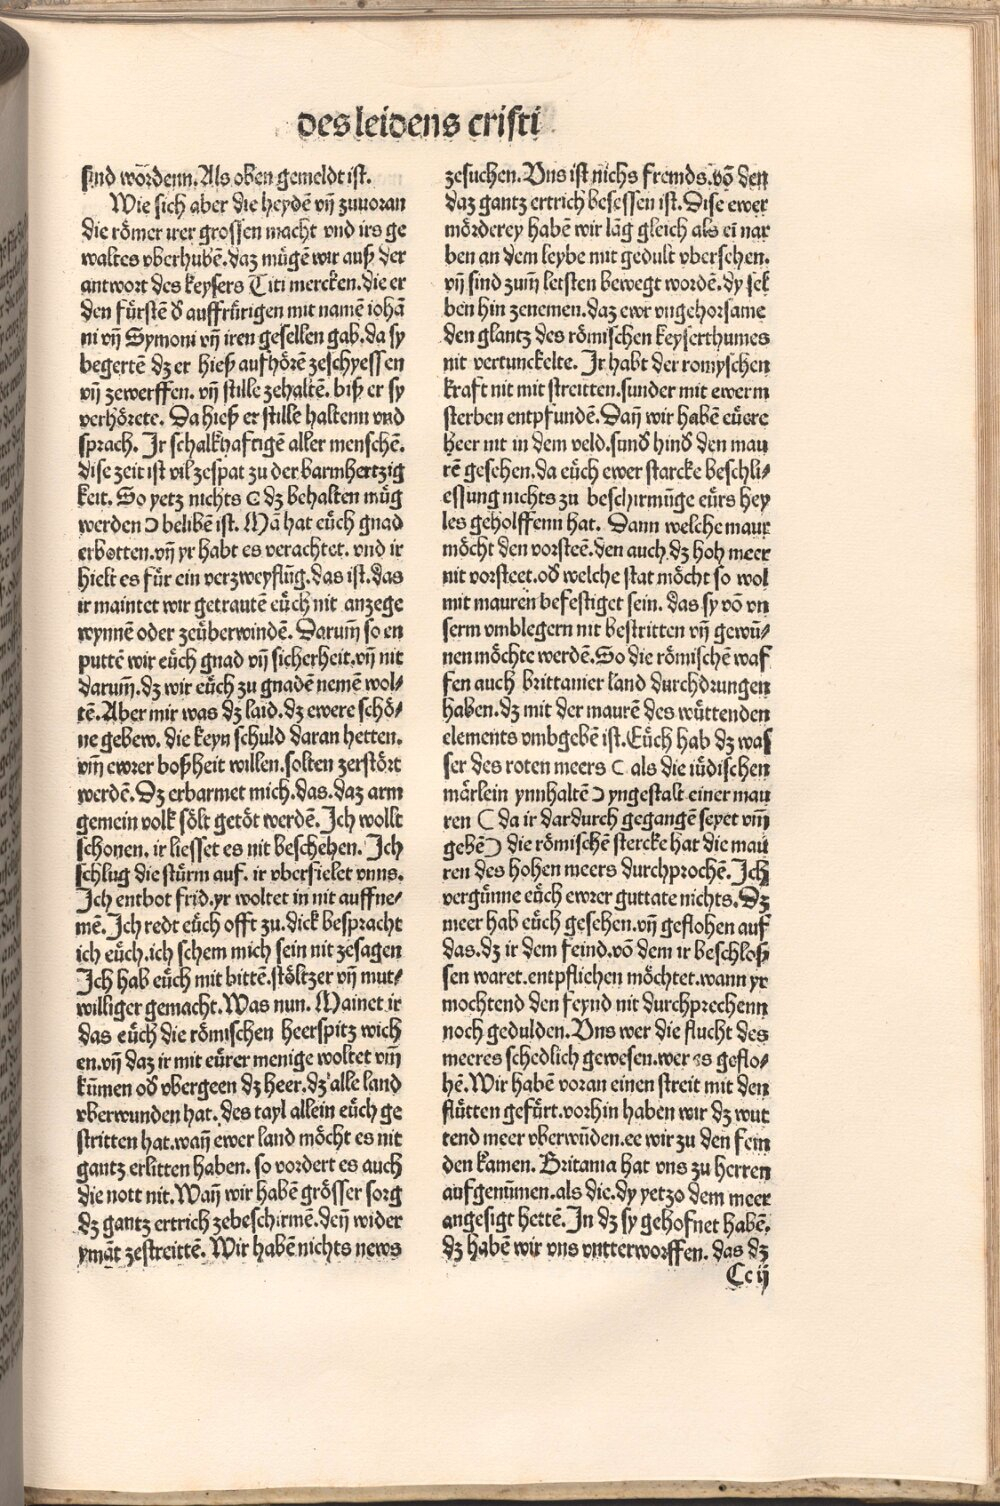 des leidens cristi
sind wördenn. Als oben gemeldt ist.
Wie sich aber die heydē vñ zuuoran
die römer irer grossen macht vnd irs ge
waltes vberhubē. daz mügē wir auß der
antwort des keysers Titi mercken. die er
den fürstē ď auffrürigen mit namē iohā
ni vñ Symoni vñ iren gesellen gab. da sy
begertē dz er hieß aufhörē zeschyessen
vñ zewerffen. vñ stille zehaltē. biß er sy
verhörete. Da hieß er stille haltenn vnd
sprach. Jr schalkhaftigē aller menschē.
dise zeit ist vil zespat zu der barmhertzig
keit. So yetz nichts ( dz behalten müg
werden ) belibē ist. Mā hat eüch gnad
erbotten. vñ yr habt es verachtet. vnd ir
hielt es für ein verzweyflūg. das ist. das
ir maintet wir getrautē eüch nit anzege
wynnē oder zeüberwindē. Darum̄ so en
puttē wir eüch gnad vñ sicherheit. vñ nit
darum̄. dz wir eüch zu gnadē nemē wol⸗
tē. Aber mir was dz laid. dz ewere schö⸗
ne gebew. die keyn schuld daran hetten.
vm̄ ewrer boßheit willen. solten zerstört
werdē. Dz erbarmet mich. das. daz arm
gemein volk sölt getöt werdē. Jch wollt
schonen. ir liesset es nit beschehen. Jch
schlug die stürm auf. ir vberfielet vnns.
Jch entbot frid. yr woltet in nit auffne⸗
mē. Jch redt eüch offt zu. dick bespracht
ich eüch. ich schem mich sein nit zesagen
Jch hab eüch mit bittē. stöltzer vñ mut⸗
williger gemacht. Was nun. Mainet ir
das eüch die römischen heerspitz wich
en. vñ daz ir mit eürer menige woltet vm̄
kūmen oď vbergeen dz heer. dz alle land
vberwunden hat. des tayl allein eüch ge
stritten hat. wañ ewer land möcht es nit
gantz erlitten haben. so vordert es auch
die nott nit. Wañ wir habē grösser sorg
dz gantz ertrich zebeschirmē. deñ wider
ymāt zestreittē. Wir habē nichts news
zesuchen. Vns ist nichs fremds. vō den
daz gantz ertrich besessen ist. Dise ewer
mörderey habē wir lāg gleich als ei nar
ben an dem leybe mit gedult vbersehen.
vñ sind zum̄ letsten bewegt wordē. dy sel
ben hin zenemen. daz ewr vngehorsame
den glantz des römischen keyserthumes
nit vertunckelte. Jr habt der romyschen
kraft nit mit streitten. sunder mit ewerm
sterben entpfundē. Dañ wir habē eüere
heer nit in dem veld. sunď hinď den mau
rē gesehen. da eüch ewer starcke beschli⸗
essung nichts zu beschirmūge eürs hey
les geholffenn hat. Dann welche maur
möcht den vorsteē. den auch. dz hoh meer
nit vorsteet. oď welche stat möcht so wol
mit mauren befestiget sein. das sy vō vn
serm vmblegern nit bestritten vñ gewū⸗
nen möchte werdē. So die römischē waf
fen auch brittanier land durchdrungen
haben. dz mit der maurē des wüttenden
elements vmbgebē ist. Eüch hab dz was
ser des roten meers ( als die iüdischen
märlein ynnhaltē ) yngestalt einer mau
ren ( da ir dardurch gegangē seyet vm̄
gebē ) die römischē stercke hat die mau
ren des hohen meers durchprochē. Jch
vergünne eüch ewrer guttate nichts. Dz
meer hab eüch gesehen. vñ geflohen auf
das. dz ir dem feind. vō dem ir beschloß
sen waret. entpfliehen möchtet. wann yr
mochtend den feynd nit durchprechenn
noch gedulden. Vns wer die flucht des
meeres schedlich gewesen. wer es geflo⸗
hē. Wir habē voran einen streit mit den
flütten gefürt. vorhin haben wir dz wut
tend meer vberwūden. ee wir zu den fein
den kamen. Britania hat vns zu herren
aufgenūmen. als die. dy yetzo dem meer
angesigt hettē. In dz sy gehofnet habē.
dz habē wir vns vntterworffen. das dz
Cc ij